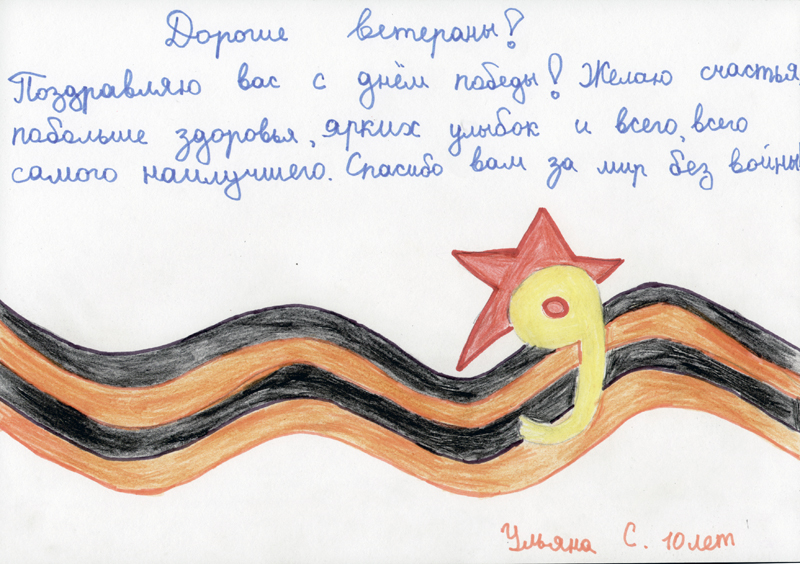 Дорогие ветераны!
Поздравляю вас с днём победы! Желаю счастья,
побольше здоровья, ярких улыбок и всего, всего
самого наилучшего. Спасибо вам за мир без войны
9
Ульяна С. 10 лет